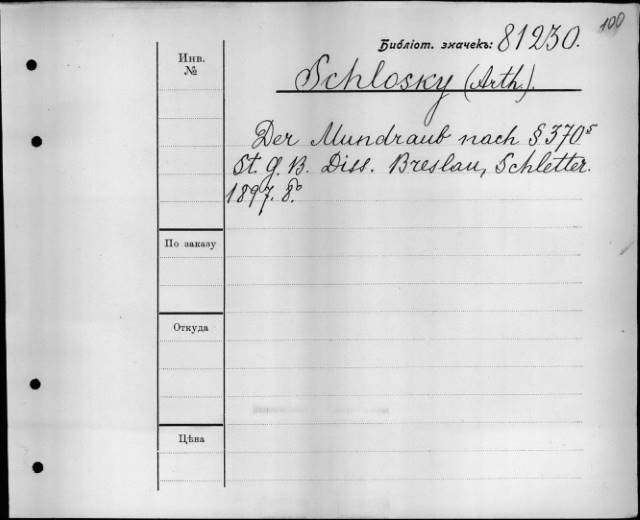 100
Библіот. значекъ: 81230.
Инв.
№
Schlosky (Arth.).
Der Mundraub nach § 370⁵
St. g. B. Diss. Breslau, Schletter.
1897. 8°.
По заказу
Откуда
Цѣна